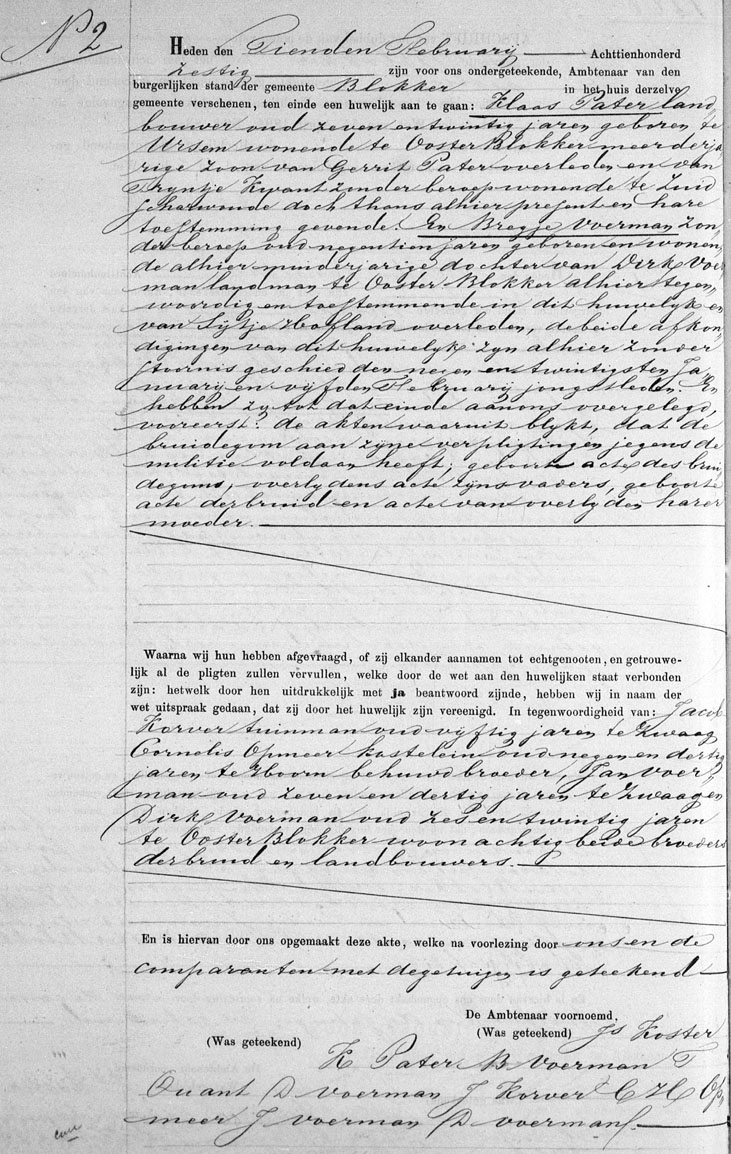 N° 2
Heden den Tienden Februarij Achttienhonderd
zestig zijn voor ons ondergeteekende, Ambtenaar van den
burgerlijken stand der gemeente Blokker in het huis derzelve
gemeente verschenen, ten einde een huwelijk aan te gaan: Klaas Pater land,,
bouwer oud zeven en twintig jaren geboren te
Ursem wonende te Ooster Blokker meerderja,,
rige zoon van Gerrit Pater overleden en van
Tryntje Kwant zonder beroep wonende te Zuid
scharwoude doch thans alhier present en hare
toestemming gevende. En Bregje Voerman zon,,
der beroep oud negentien jaren geboren en wonen,,
de alhier minderjarige dochter van Dirk Voer
man landman te Ooster Blokker alhier tegen,,
woordig en toestemmende in dit huwelyk en
van Sijtje Hofland overleden, de beide afkon,,
digingen van dit huwelyk zyn alhier zonder
stoornis geschied den negen en twintigsten Ja,,
nuarij en vijfden Februarij jongstleden. En
hebben zy tot dat einde aan ons overgelegd,
vooreerst: de akten waaruit blykt, dat de
bruidegom aan zyne verpligtingen jegens de
militie voldaan heeft; geboorte acte des brui,,
degums, overlydens acte zyns vaders, geboorte
acte der bruid en acte van overlyden harer
moeder.
Waarna wij hun hebben afgevraagd, of zij elkander aannamen tot echtgenooten, en getrouwe-
lijk al de pligten zullen vervullen, welke door de wet aan den huwelijken staat verbonden
zijn: hetwelk door hen uitdrukkelijk met ja beantwoord zijnde, hebben wij in naam der
wet uitspraak gedaan, dat zij door het huwelijk zijn vereenigd. In tegenwoordigheid van: Jacob
Korver tuinman oud vijftig jaren te Zwaag
Cornelis Opmeer kastelein oud negen en dertig
jaren te Hoorn behuwdbroeder, Jan Voer,,
man oud zeven en dertig jaren te Zwaag en
Dirk Voerman oud zes en twintig jaren
te Ooster Blokker woonachtig beide broeders
der bruid en landbouwers.
En is hiervan door ons opgemaakt deze akte, welke na voorlezing door ons en de
comparanten met de getuigen is geteekend
De Ambtenaar voornoemd,
(Was geteekend) (Was geteekend) Js Koster
K Pater B Voerman T
Quant D Voerman J Korver C H Op,,
meer J Voerman D Voerman